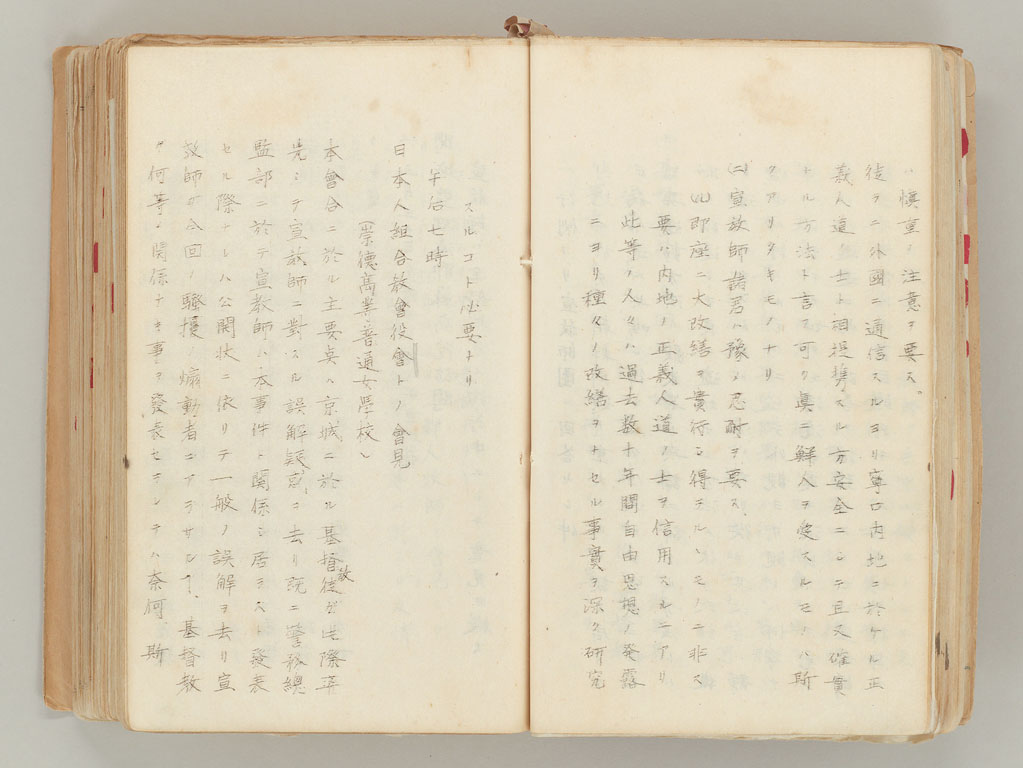 ハ慎重ノ注意ヲ要ス。
徒ラニ外國ニ通信スルヨリ寧ロ内地ニ於ケル正
義人道ノ士ト相提携スル方安全ニシテ且又確實
ナル方法ト言フ可ク真ニ鮮人ヲ愛スルモノハ斯
クアリタキモノナリ
(二)宣教師諸君ハ豫メ忍耐ヲ要ス
即座ニ大改繕ヲ實行シ得ラルヽモノニ非ス
要ハ内地ノ正義人道ノ士ヲ信用スルニアリ
此等ノ人々ハ過去数十年間自由思想ノ発露
ニヨリ種々ノ改繕ヲナセル事實ヲ深ク研究
スルコト必要ナリ
午后七時
日本人組合教會役會トノ會見
(崇德高等普通女學校)
本會合ニ於ル主要点ハ京城ニ於ル基督教徒ガ此際率
先シテ宣教師ニ對スル誤解疑惑ヲ去リ既ニ警務總
監部ニ於テ宣教師ハ本事件ト関係シ居ラスト發表
セル際ナレハ公開状ニ依リテ一般ノ誤解ヲ去リ宣
教師ガ今回ノ騒擾ノ煽動者ニアラサルコト、基督教
ガ何等ノ関係ナキ事ヲ發表セラレテハ奈何 斯